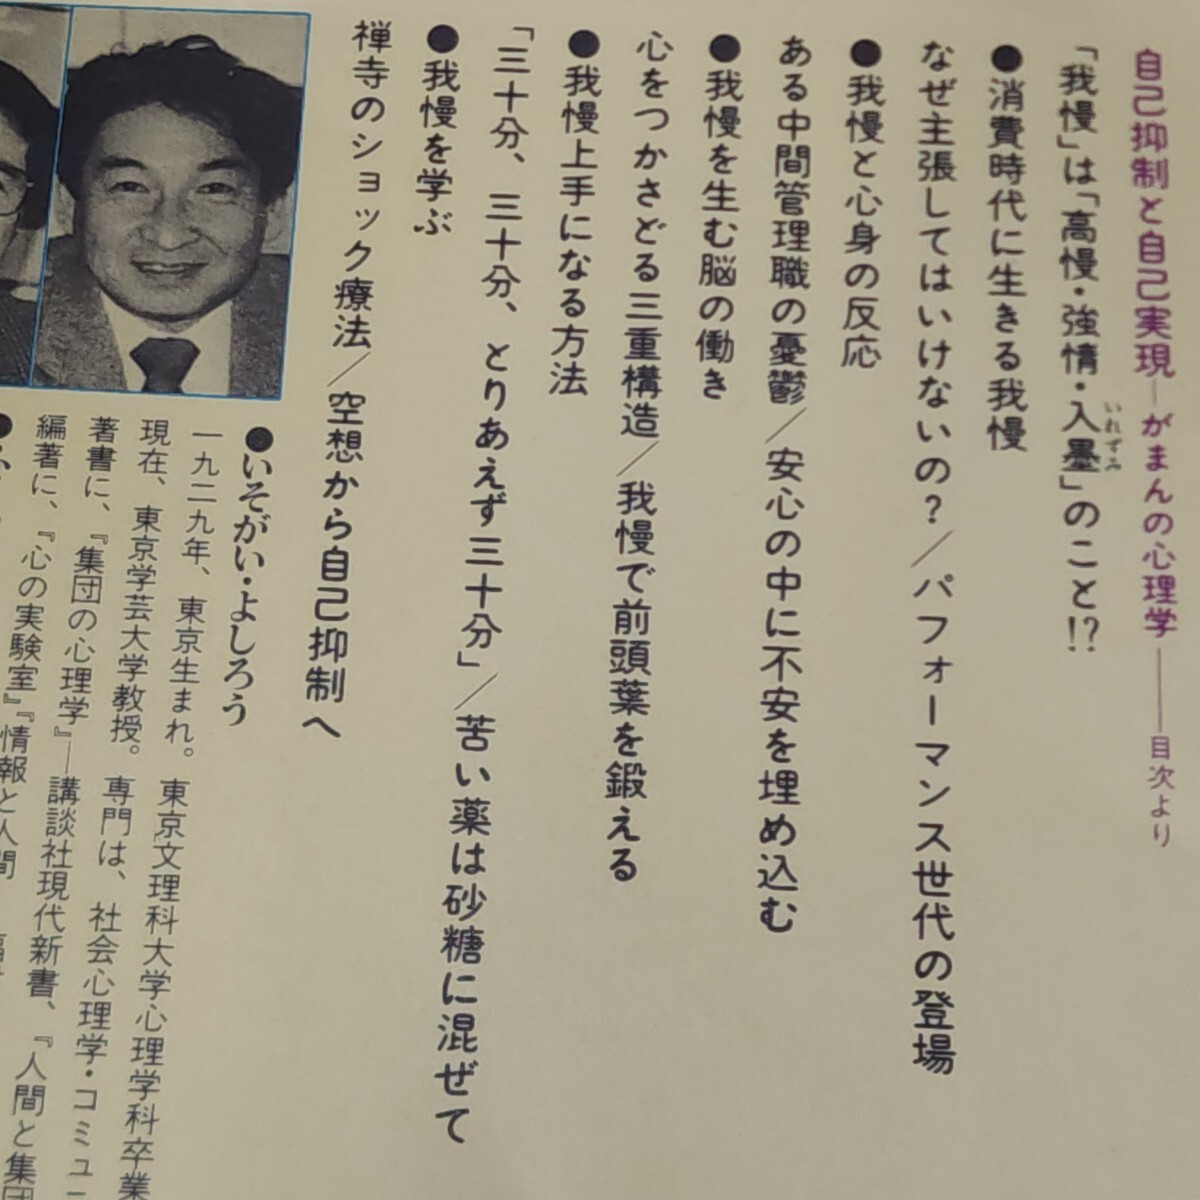 自己抑制と自己実現―がまんの心理学――目次より
「我慢」は「高慢・強情・入墨」のこと!?
いれずみ
●消費時代に生きる我慢
なぜ主張してはいけないの？／パフォーマンス世代の登場
●我慢と心身の反応
ある中間管理職の憂鬱／安心の中に不安を埋め込む
●我慢を生む脳の働き
心をつかさどる三重構造／我慢で前頭葉を鍛える
●我慢上手になる方法
「三十分、三十分、とりあえず三十分」／苦い薬は砂糖に混ぜて
●我慢を学ぶ
禅寺のショック療法／空想から自己抑制へ
●いそがい・よしろう
一九二九年、東京生まれ。東京文理科大学心理学科卒業
現在、東京学芸大学教授。専門は、社会心理学・コミュ
著書に、『集団の心理学』―講談社現代新書、『人間と集団
編著に、『心の実験室』『情報と人間